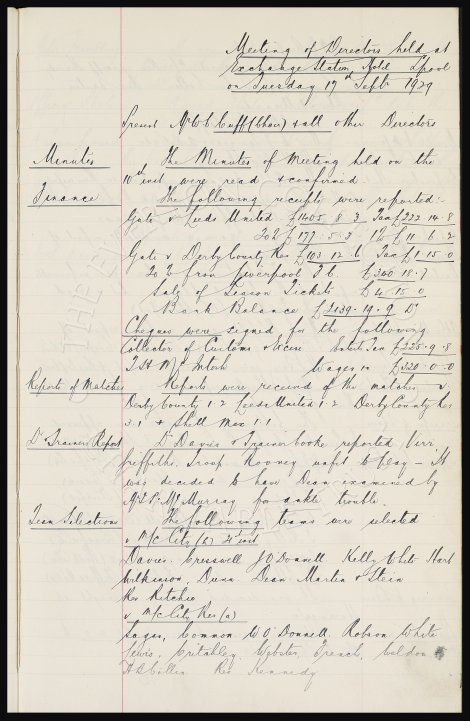 Meeting of Directors held at
Exchange Station Hotel L'pool
on Tuesday 17th Sept 1929
Present Mr W C Cuff (Chair) & all other Directors
Minutes The Minutes of Meeting held on the
10th inst were read & confirmed
Finance The following receipts were reported:-
Gate v Leeds United £1405. 8. 3 Tax £222 14. 8
20% £177. 5. 3 1% £11. 6. 2
Gate v Derby County Res £103 12. 6 Tax £1 15. 0
20% from Liverpool F.C. £340 18. 7
Sale of Season Tickets £4 15. 0
Bank Balance £2139. 19. 9 Dr
Cheques were signed for the following
Collector of Customs & Excise Ent Tax £225. 9. 8
T.H. McIntosh Wages £320. 0. 0
Reports of Matches Reports were received of the matches v
Derby County 1.2 Leeds United 1.2 Derby County Res
3.1 & Shell Mex 1.1
Dr Trainers Report Dr Davies & Trainer Cooke reported Virr
Griffiths, Troup, Rooney unfit to play - It
was decided to have Dean examined by
Mr Murray for ankle trouble.
Team Selections The following teams were selected
v M/c City (h) inst
Davies. Cresswell J O'Donnell. Kelly White Hart
Wilkinson. Dunn. Dean. Martin & Stein
Res Ritchie
v M/c City Res (a)
Sagar, Common W O'Donnell, Robson White
Lewis. Critchley. Webster, French, Weldon
H B Collin Res Kennedy